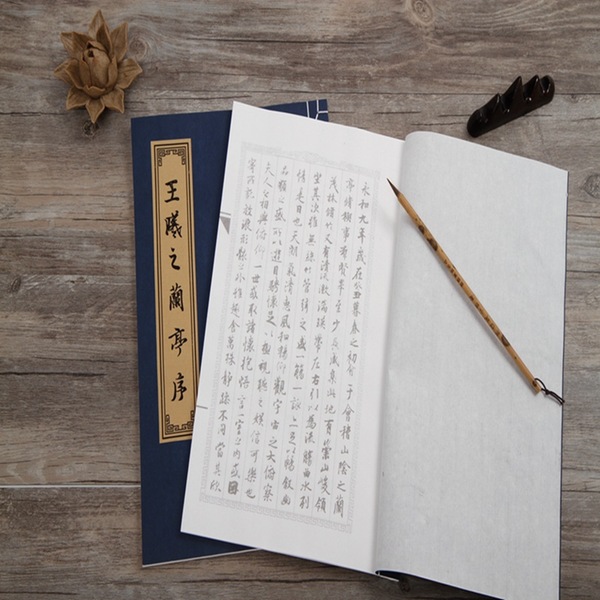 王曦之蘭亭序
永和九年歲在癸丑暮春之初會于會稽山陰之蘭
亭脩稧事也群賢畢至少長咸集此地有崇山峻領
茂林脩竹又有清流激湍暎帶左右引以為流觴曲水列
坐其次雖無絲竹管弦之盛一觴一詠亦足以暢敘幽
情是日也天朗氣清惠風和暢仰觀宇宙之大俯察
品類之盛所以遊目騁懷足以極視聽之娛信可樂也
夫人之相與俯仰一世或取諸懷抱悟言一室之內或
寄所託放浪形骸之外雖趣舍萬殊靜躁不同當其欣